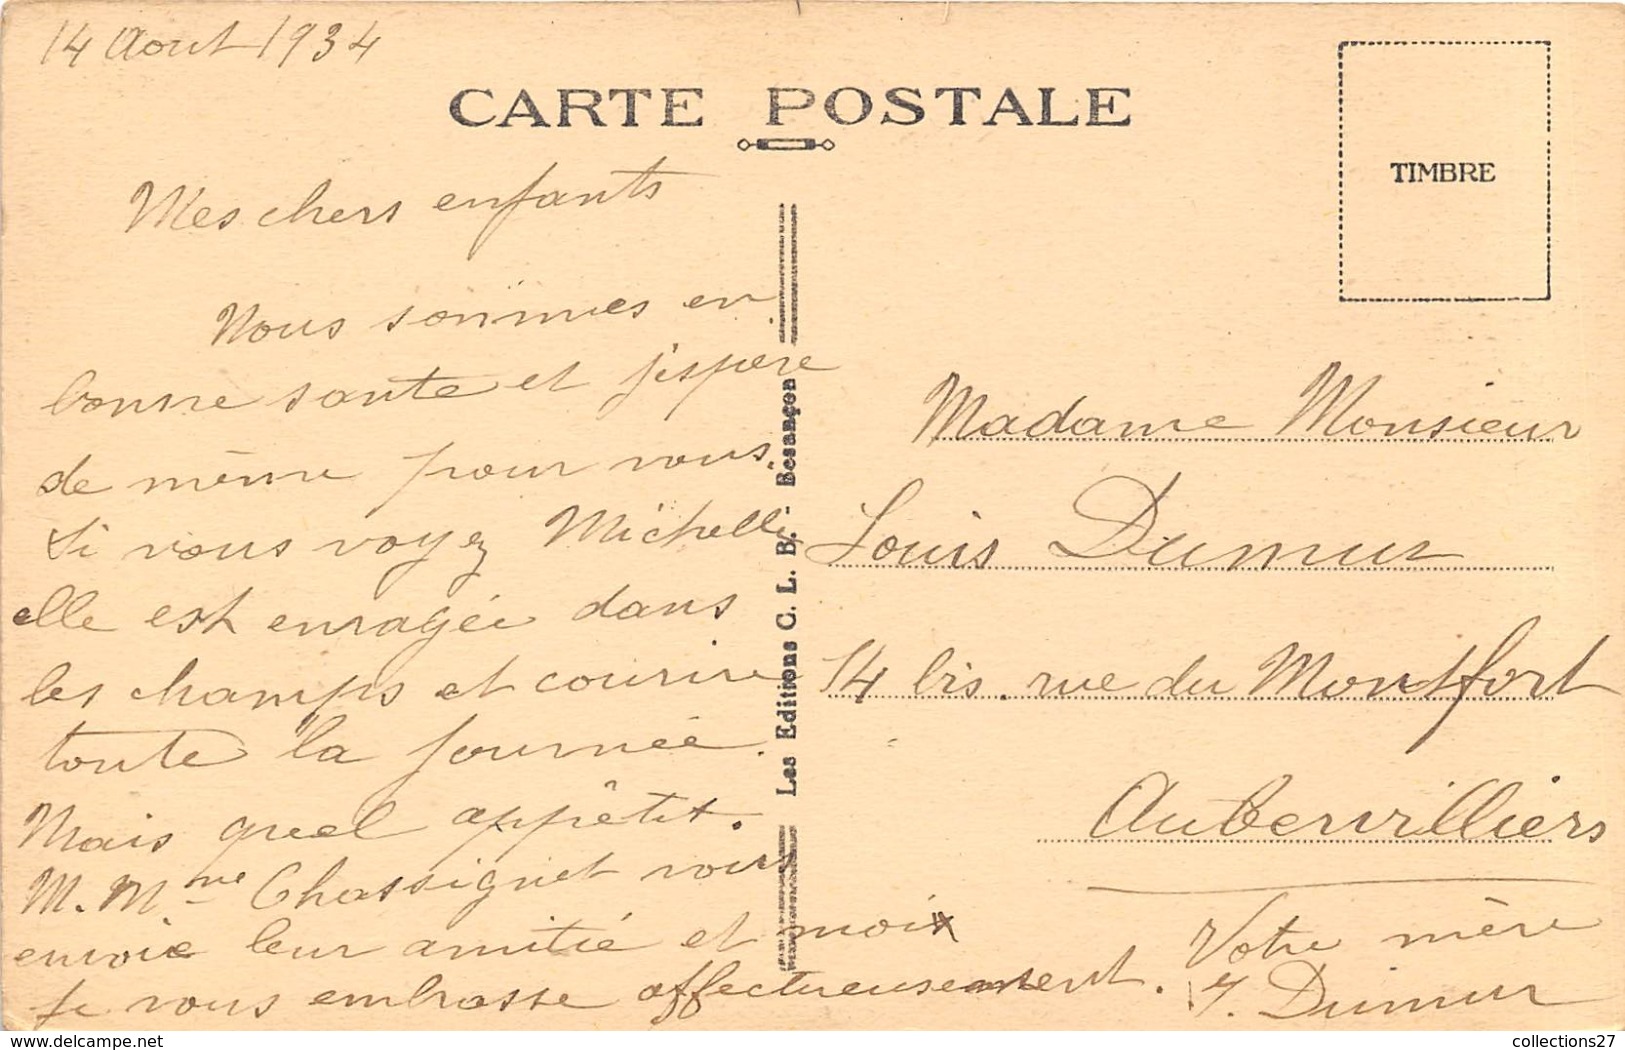 14 Aout 1934
CARTE POSTALE
TIMBRE
Mes chers enfants
Nous sommes en
bonne sante et j'espere
de même pour vous.
Si vous voyez Michelle
elle est enragée dans
les champs et courire
toute la journée.
Mais quel appêtit.
M. Mme Chassignet vous
envoie leur amitié et moi
je vous embrasse affectueusement.
Votre mère
Y. Dumur
Les Editions C. L. B. - Besançon
Madame Monsieur
Louis Dumur
14 bis. rue du Montfort
Aubervilliers
www.delcampe.net
collections27